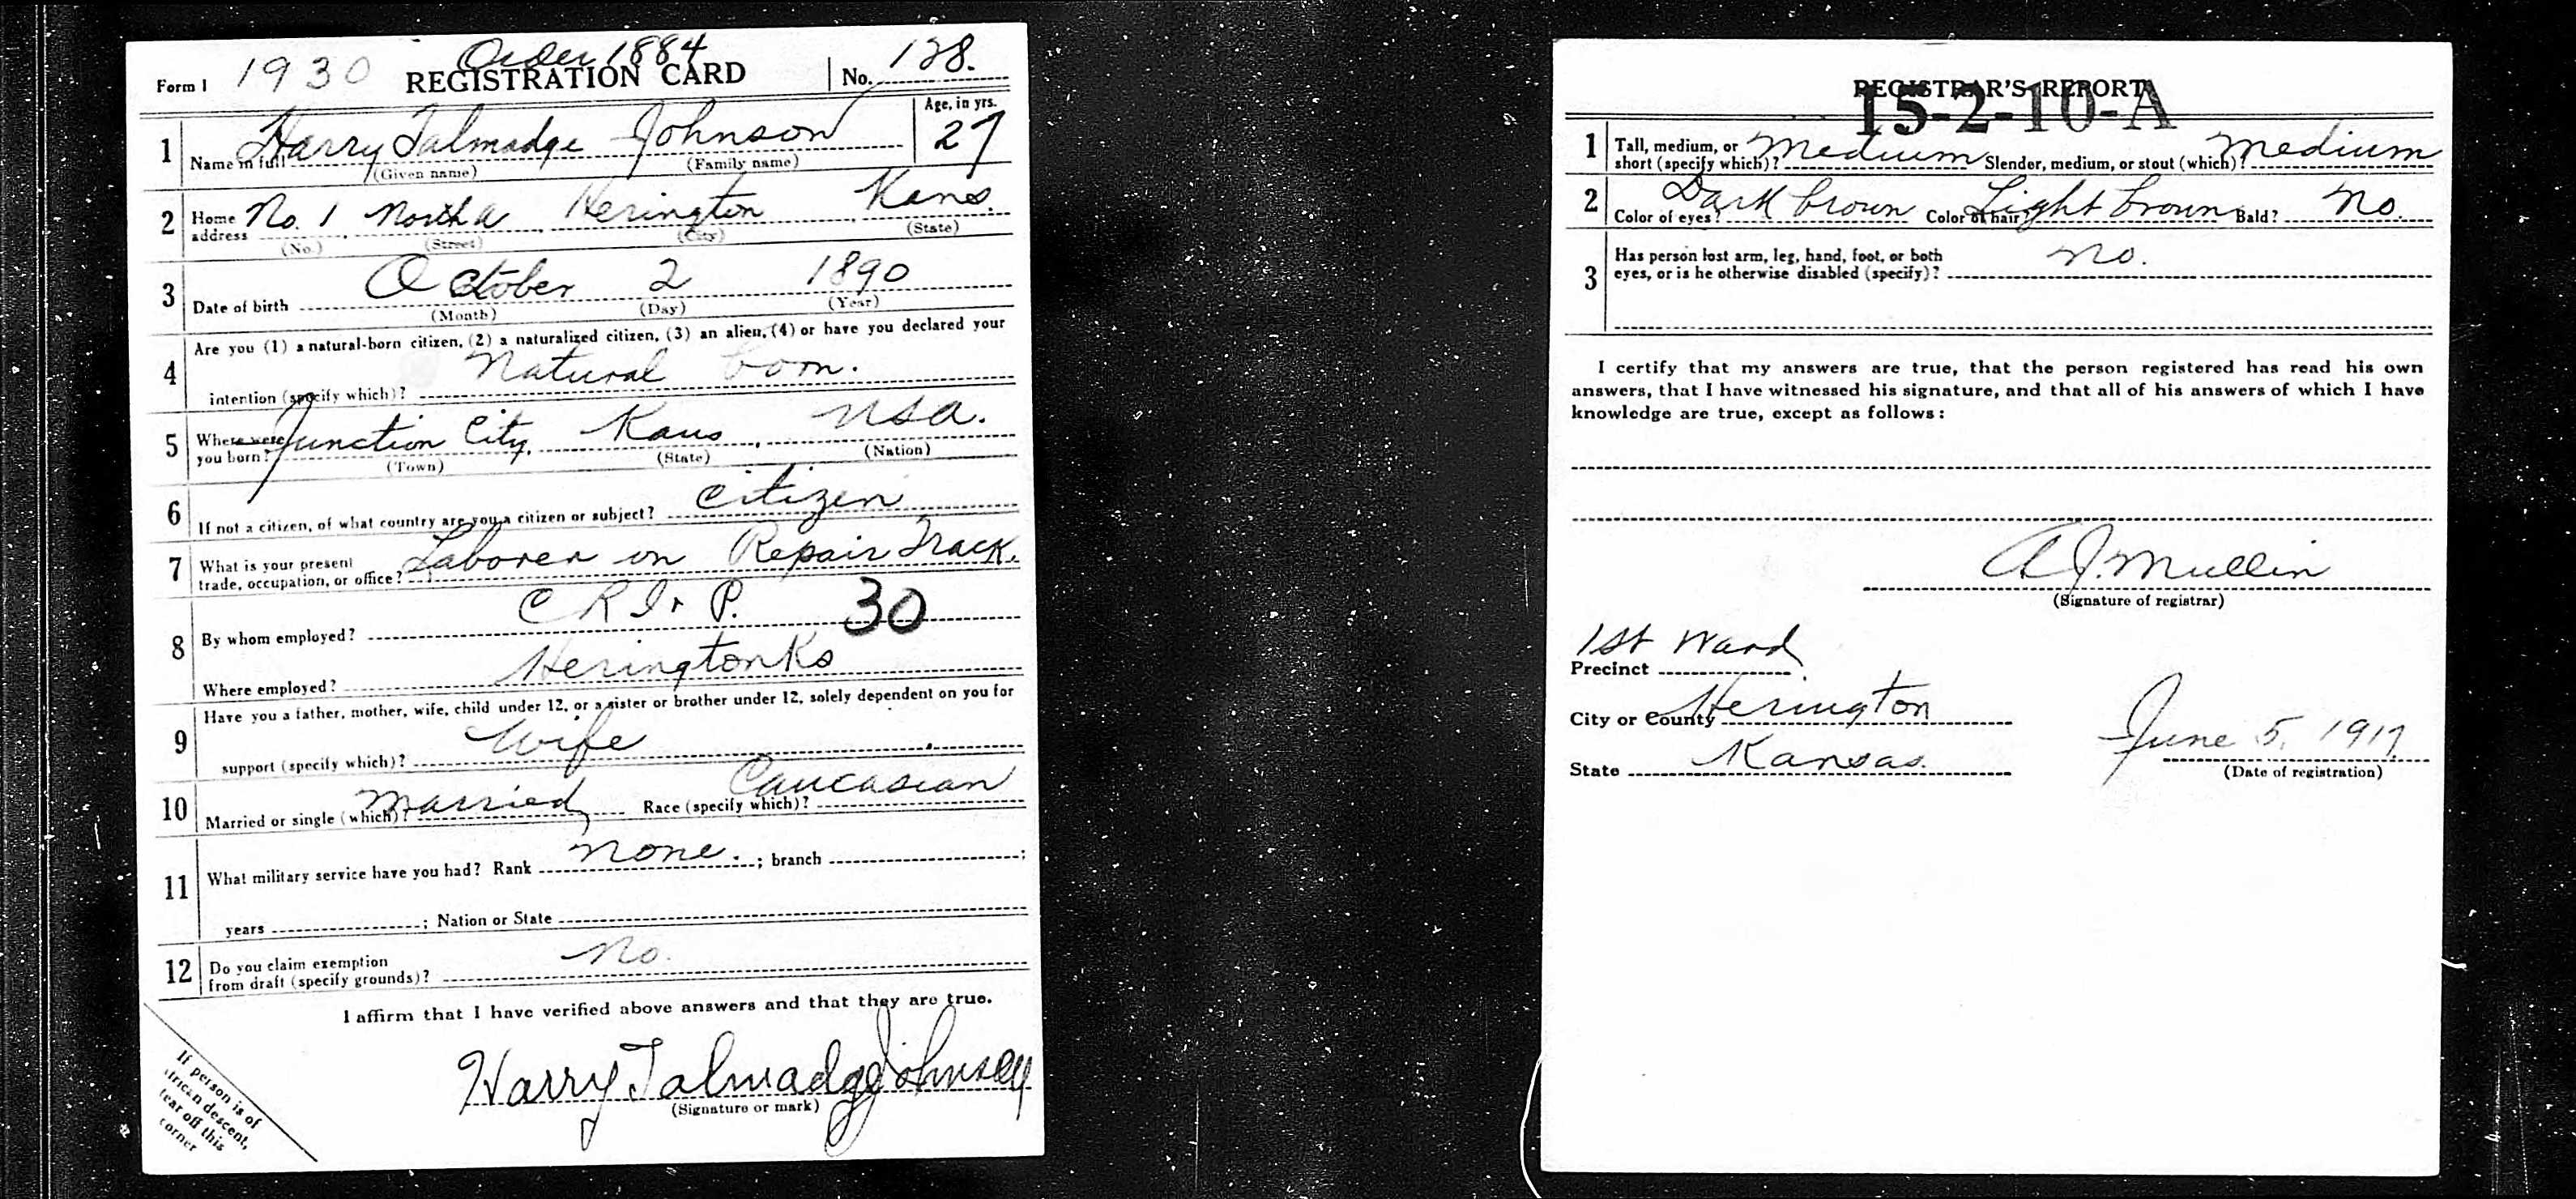 Form 1 1930 Order 1884 No. 128.
REGISTRATION CARD
Age, in yrs.
1 Name in full Harry Talmadge Johnson 27
(Given name) (Family name)
2 Home address No. 1 North A Herington Kans.
(No.) (Street) (City) (State)
3 Date of birth October 2 1890
(Month) (Day) (Year)
4 Are you (1) a natural-born citizen, (2) a naturalized citizen, (3) an alien, (4) or have you declared your
intention (specify which)? Natural born.
5 Where were you born? Junction City, Kans, USA.
(Town) (State) (Nation)
6 If not a citizen, of what country are you a citizen or subject? Citizen
7 What is your present trade, occupation, or office? Laborer on Repair Track.
8 By whom employed? C R I & P. 30
Where employed? Herington Ks
9 Have you a father, mother, wife, child under 12, or a sister or brother under 12, solely dependent on you for
support (specify which)? Wife
10 Married or single (which)? Married Race (specify which)? Caucasian
11 What military service have you had? Rank None. ; branch ;
years ; Nation or State
12 Do you claim exemption from draft (specify grounds)? No.
I affirm that I have verified above answers and that they are true.
Harry Talmadge Johnson
(Signature or mark)
If person is of
African descent,
tear off this
corner
REGISTRAR'S REPORT
15-2-10-A
1 Tall, medium, or short (specify which)? Medium Slender, medium, or stout (which)? Medium
2 Color of eyes? Dark brown Color of hair? Light brown Bald? No.
3 Has person lost arm, leg, hand, foot, or both
eyes, or is he otherwise disabled (specify)? No.
I certify that my answers are true, that the person registered has read his own
answers, that I have witnessed his signature, and that all of his answers of which I have
knowledge are true, except as follows:
A J. Mullin
(Signature of registrar)
Precinct 1st Ward
City or County Herington
State Kansas. June 5, 1917
(Date of registration)